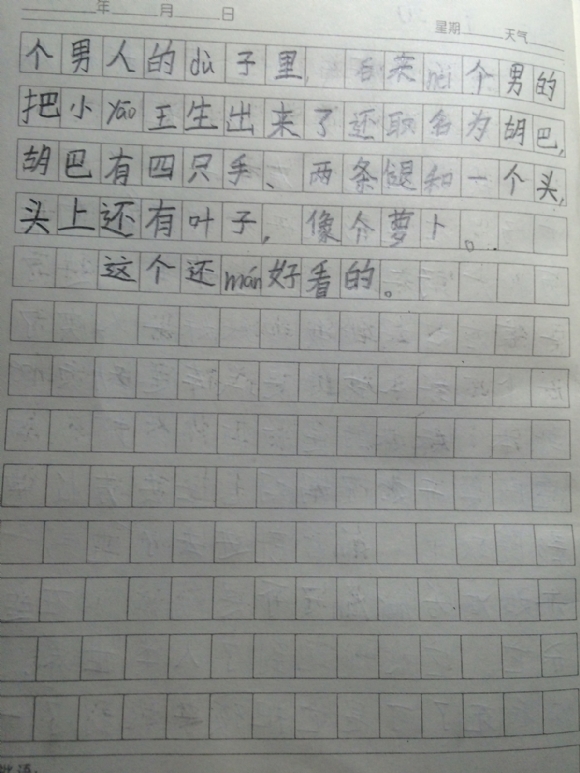 年 月 日
星期 天气
个男人的dù子里,后来nèi个男的
把小yāo王生出来了还取名为胡巴,
胡巴有四只手、两条腿和一个头,
头上还有叶子,像个萝卜。
这个还mán好看的。
批语: